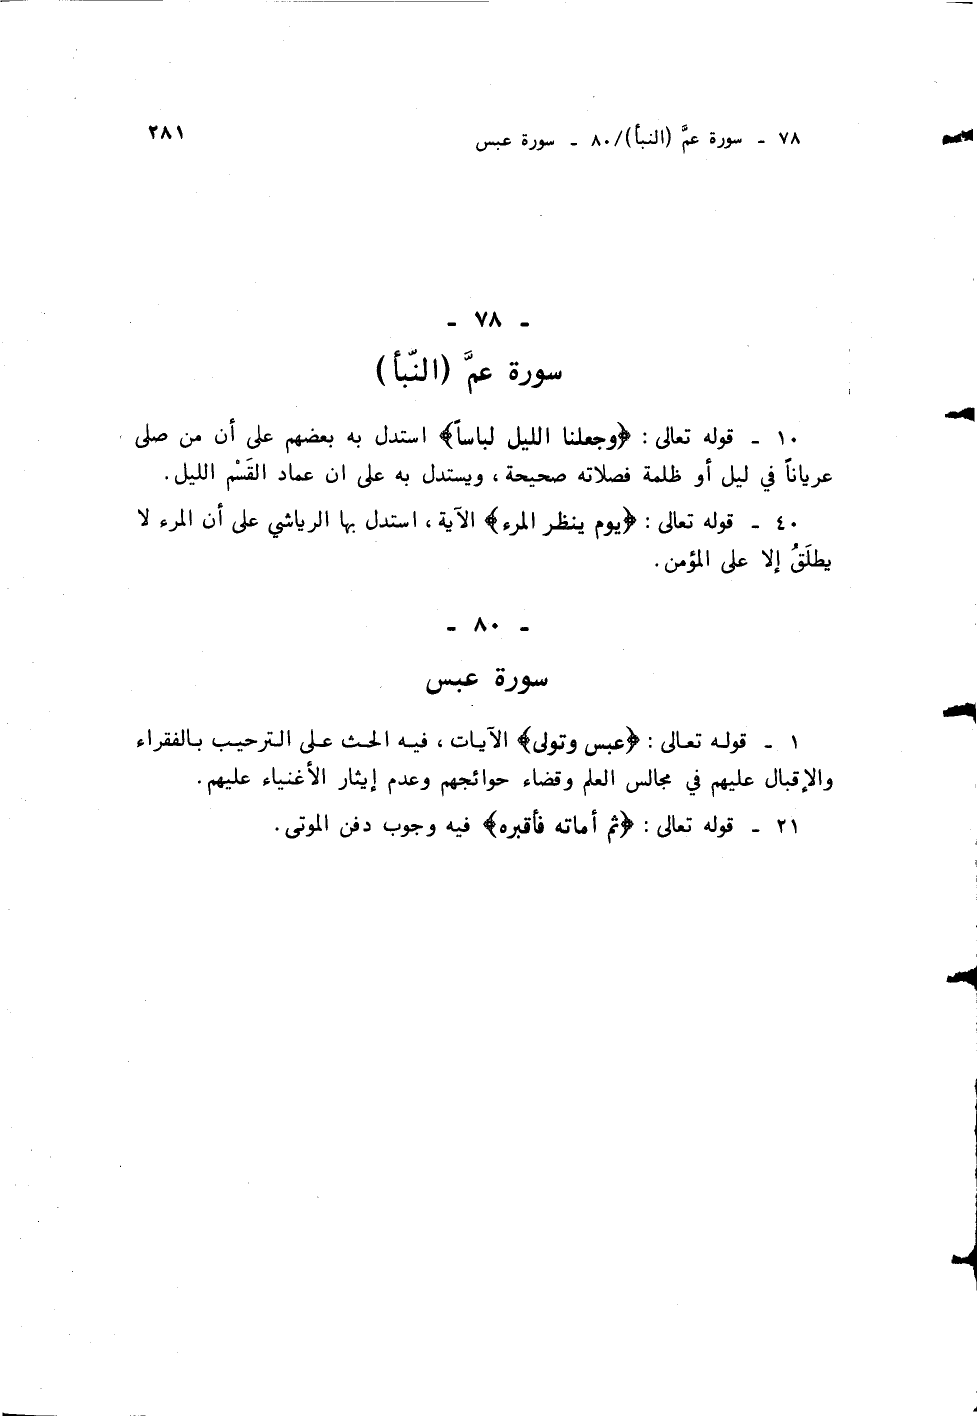 ٧٨ - سورة عمَّ (النبأ)/٨٠ - سورة عبس
٢٨١
- ٧٨ -
سورة عمَّ (النّبأ)
١٠ - قوله تعالى : ﴿وجعلنا الليل لباساً﴾ استدل به بعضهم على أن من صلى
عرياناً في ليل أو ظلمة فصلاته صحيحة ، ويستدل به على ان عماد القَسْم الليل .
٤٠ - قوله تعالى : ﴿يوم ينظر المرء﴾ الآية ، استدل بها الرياشي على أن المرء لا
يطلَقُ إلا على المؤمن .
- ٨٠ -
سورة عبس
١ - قوله تعالى : ﴿عبس وتولى﴾ الآيات ، فيه الحث على الترحيب بالفقراء
والإقبال عليهم في مجالس العلم وقضاء حوائجهم وعدم إيثار الأغنياء عليهم .
٢١ - قوله تعالى : ﴿ثم أماته فأقبره﴾ فيه وجوب دفن الموتى .